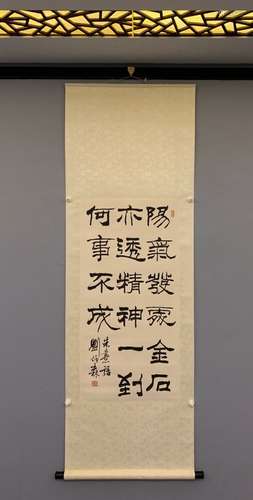 陽氣發處金石
亦透精神一到
何事不成
朱熹語
劉炳森